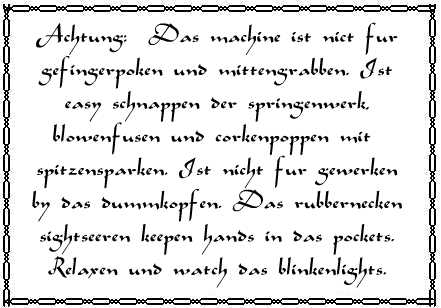 Achtung: Das machine ist niet fur
gefingerpoken und mittengrabben. Ist
easy schnappen der springenwerk,
blowenfusen und corkenpoppen mit
spitzensparken. Ist nicht fur gewerken
by das dummkopfen. Das rubbernecken
sightseeren keepen hands in das pockets.
Relaxen und watch das blinkenlights.